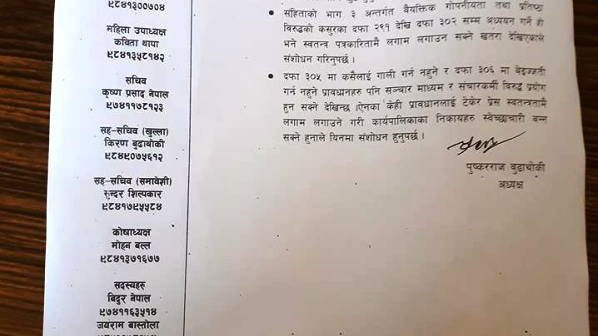 ९८४१३००७०४
महिला उपाध्यक्ष
कविता थापा
९८४१३५८१४२
सचिव
कृष्ण प्रसाद नेपाल
९७४११७८१२३
सह-सचिव (खुल्ला)
किरण बुढाथोकी
९८४९०७५६१२
सह-सचिव (समावेशी)
सुन्दर शिल्पकार
९८४१७९५५८४
कोषाध्यक्ष
मोहन बल्ल
९८४१३७१६७७
सदस्यहरु
बिदुर नेपाल
९७४११६३५१४
जयराम बास्तोला
• संहिताको भाग ३ अन्तर्गत बैयक्तिक गोपनीयता तथा प्रतिष्ठा
विरुद्धको कसुरका दफा २९१ देखि दफा ३०२ सम्म अध्ययन गर्ने हो
भने स्वतन्त्र पत्रकारितामै लगाम लगाउन सक्ने खतरा देखिएकाले
संशोधन गरिनुपर्छ ।
• दफा ३०५ मा कसैलाई गाली गर्न नहुने र दफा ३०६ मा बेइज्जती
गर्न नहुने प्रावधानहरु पनि सञ्चार माध्यम र संचारकर्मी विरुद्ध प्रयोग
हुन सक्ने देखिन्छ ।ऐनका केही प्रावधानलाई टेकेर प्रेस स्वतन्त्रतामै
लगाम लगाउने गरी कार्यपालिकाका निकायहरु स्वेच्छाचारी बन्न
सक्ने हुनाले यिनमा संशोधन हुनुपर्छ ।
पुष्करराज बुढाथोकी
अध्यक्ष